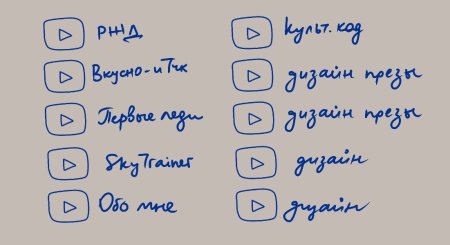 РЖД
Вкусно-и Тчк
Первые леди
SkyTrainer
Обо мне
Культ. код
дизайн презы
дизайн презы
дизайн
дизайн